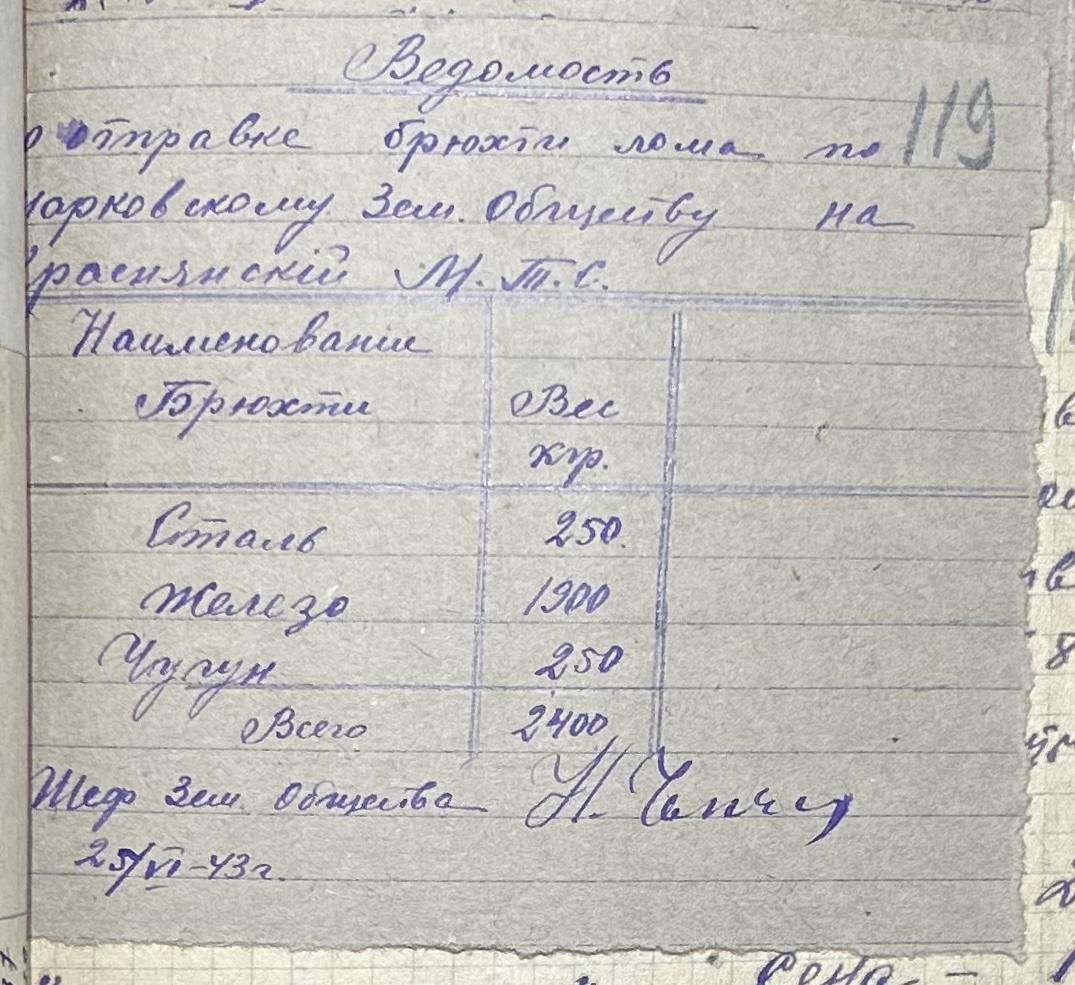 Ведомость
119
о отправке брюхти лома по
марковскому Зем. Обществу на
Краснянский М.Т.С.
Наименование
Брюхти Вес
кгр.
Сталь 250
Железо 1900
Чугун 250
Всего 2400
Шеф Зем Общества Н.
25/VI-43г.